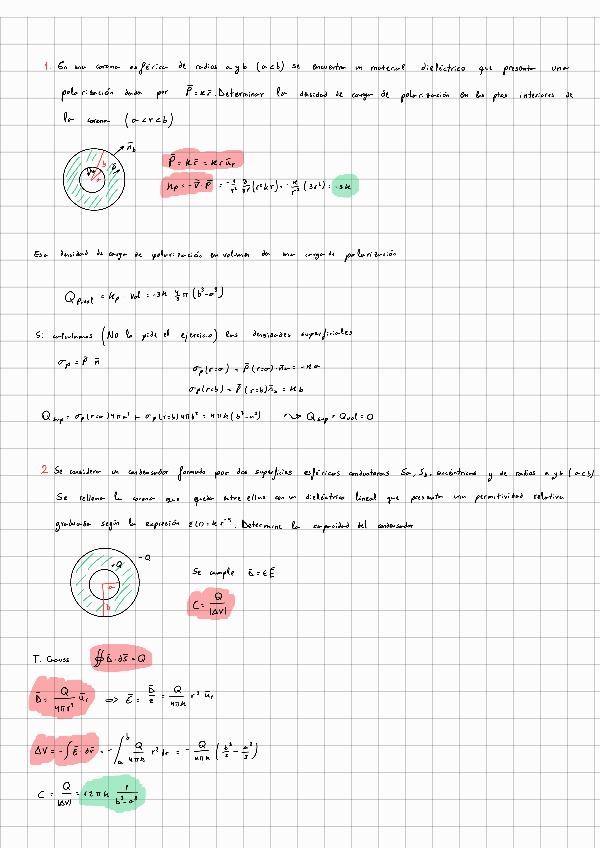 1. En una corona esférica de radios a y b (a<b) se encuentra un material dieléctrico que presenta una
polarización dada por P̄ = k r̄. Determinar la densidad de carga de polarización en los ptos interiores de
la corona (a<r<b)
n̄b
b
P̄ = k r̄ = k r ūr
= -∇̄·P̄ = -1/r² ∂/∂r (r² k r) = -k/r² (3r²) = -3k
Esa densidad de carga de polarización en volumen da una carga de polarización
vol = -3k 4/3 π (b³-a³)
Si calculamos (No lo pide el ejercicio) las densidades superficiales
σp = P̄ n̄
σp(r=a) = P̄(r=a)·n̄a = -k a
σp(r=b) = P̄(r=b) n̄b = k b
Qsup = σp(r=a) 4πa² + σp(r=b) 4πb² = 4πk(b³-a³) ⇝ Qsup + Qvol = 0
2 Se considera un condensador formado por dos superficies esféricas conductoras Sa, Sb, concéntricas y de radios a y b (a<b)
Se rellena la corona que queda entre ellas con un dieléctrico lineal que presenta una permitividad relativa
graduada según la expresión ε(r) = k r⁻⁴. Determine la capacidad del condensador
+Q
-Q
a
b
Se cumple D̄ = εĒ
C = Q/|ΔV|
T. Gauss ∯ D̄·dS̄ = Q
D̄ = Q/4πr² ūr ⇒ Ē = D̄/ε = Q/4πk r² ūr
ΔV = -∫ Ē·dr̄ = -∫ₐᵇ Q/4πk r² dr = -Q/4πk (b³/3 - a³/3)
C = Q/|ΔV| = 12πk 1/(b³-a³)